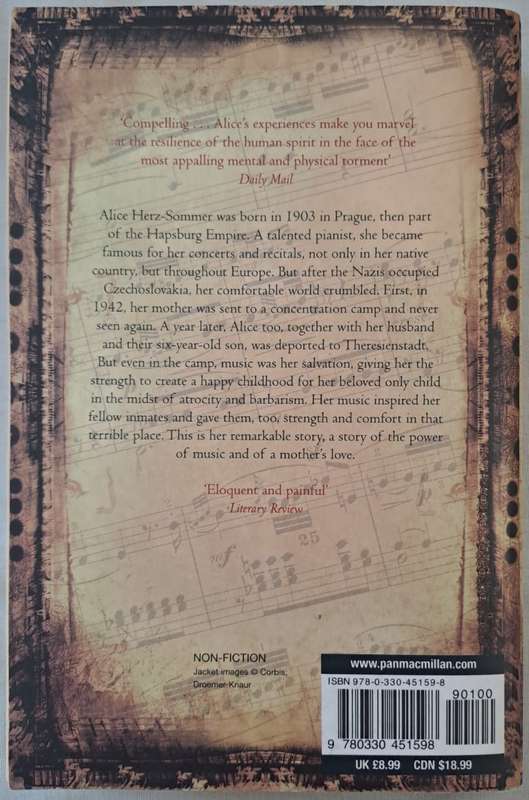 'Compelling . . . Alice's experiences make you marvel
at the resilience of the human spirit in the face of the
most appalling mental and physical torment'
Daily Mail
Alice Herz-Sommer was born in 1903 in Prague, then part
of the Hapsburg Empire. A talented pianist, she became
famous for her concerts and recitals, not only in her native
country, but throughout Europe. But after the Nazis occupied
Czechoslovakia, her comfortable world crumbled. First, in
1942, her mother was sent to a concentration camp and never
seen again. A year later, Alice too, together with her husband
and their six-year-old son, was deported to Theresienstadt.
But even in the camp, music was her salvation, giving her the
strength to create a happy childhood for her beloved only child
in the midst of atrocity and barbarism. Her music inspired her
fellow inmates and gave them, too, strength and comfort in that
terrible place. This is her remarkable story, a story of the power
of music and of a mother's love.
'Eloquent and painful'
Literary Review
mf
25
p
NON-FICTION
Jacket images © Corbis,
Droemer-Knaur
www.panmacmillan.com
ISBN 978-0-330-45159-8
90100
9 780330 451598
UK £8.99 CDN $18.99